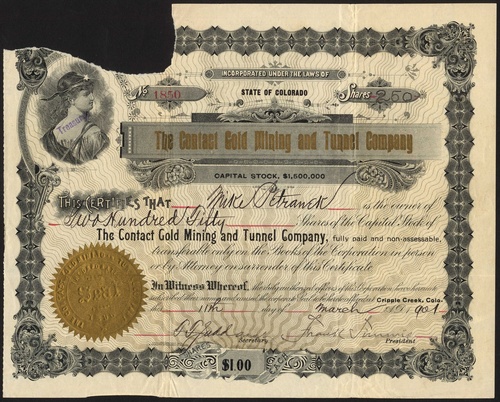 INCORPORATED UNDER THE LAWS OF
STATE OF COLORADO
No 1850
Shares 250
The Contact Gold Mining and Tunnel Company
CAPITAL STOCK, $1,500,000
THIS CERTIFIES THAT Mike Petranek is the owner of
Two Hundred Fifty Shares of the Capital Stock of
The Contact Gold Mining and Tunnel Company, fully paid and non-assessable,
transferable only on the Books of the Corporation in person
or by Attorney on surrender of this Certificate
In Witness Whereof, the duly authorized officers of this Corporation have hereunto
subscribed their names and caused the corporate Seal to be hereto affixed at Cripple Creek, Colo.
this 11th day of March 1901
Secretary President
SHARES $1.00 EACH